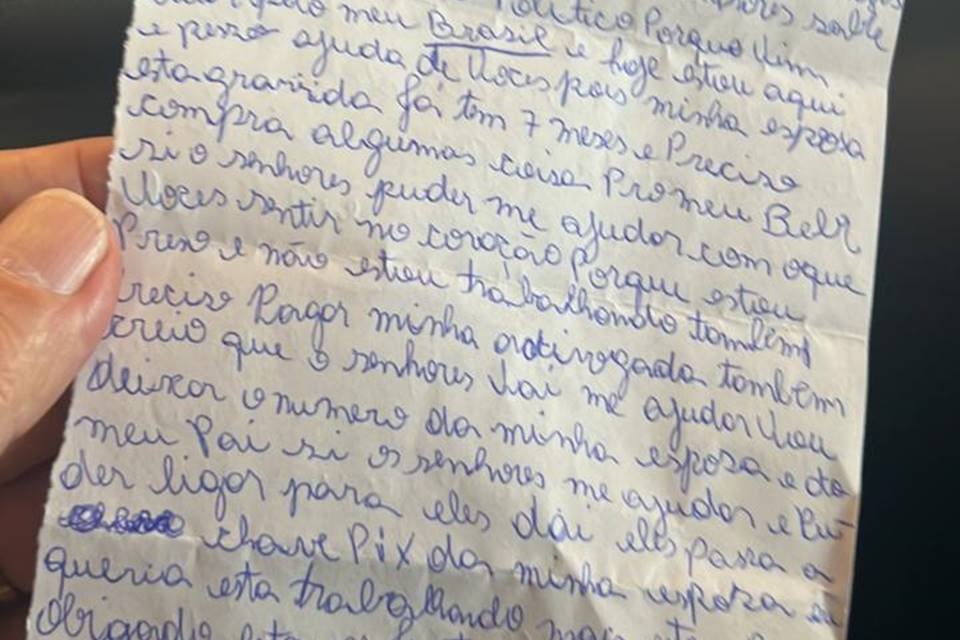 meu Politico Porque Vim
meu Brasil e hoje estou aqui
e peso ajuda de Voces pois minha esposa
esta gravida já tem 7 meses e Preciso
compra algumas coisa Pro meu Bebe
si o senhores puder me ajudar com o que
Voces sentir no coração Porque estou
Preso e não estou trabalhando tambem
reciso Pagar minha adivogada tambem
creio que o senhores Vai me ajudar Vou
deixar o numero da minha esposa e do
meu Pai si o senhores me ajudar e Pu-
der ligar para eles dai eles passa a
chave Pix da minha esposa eu
queria esta trabalhando mais
Obrigado